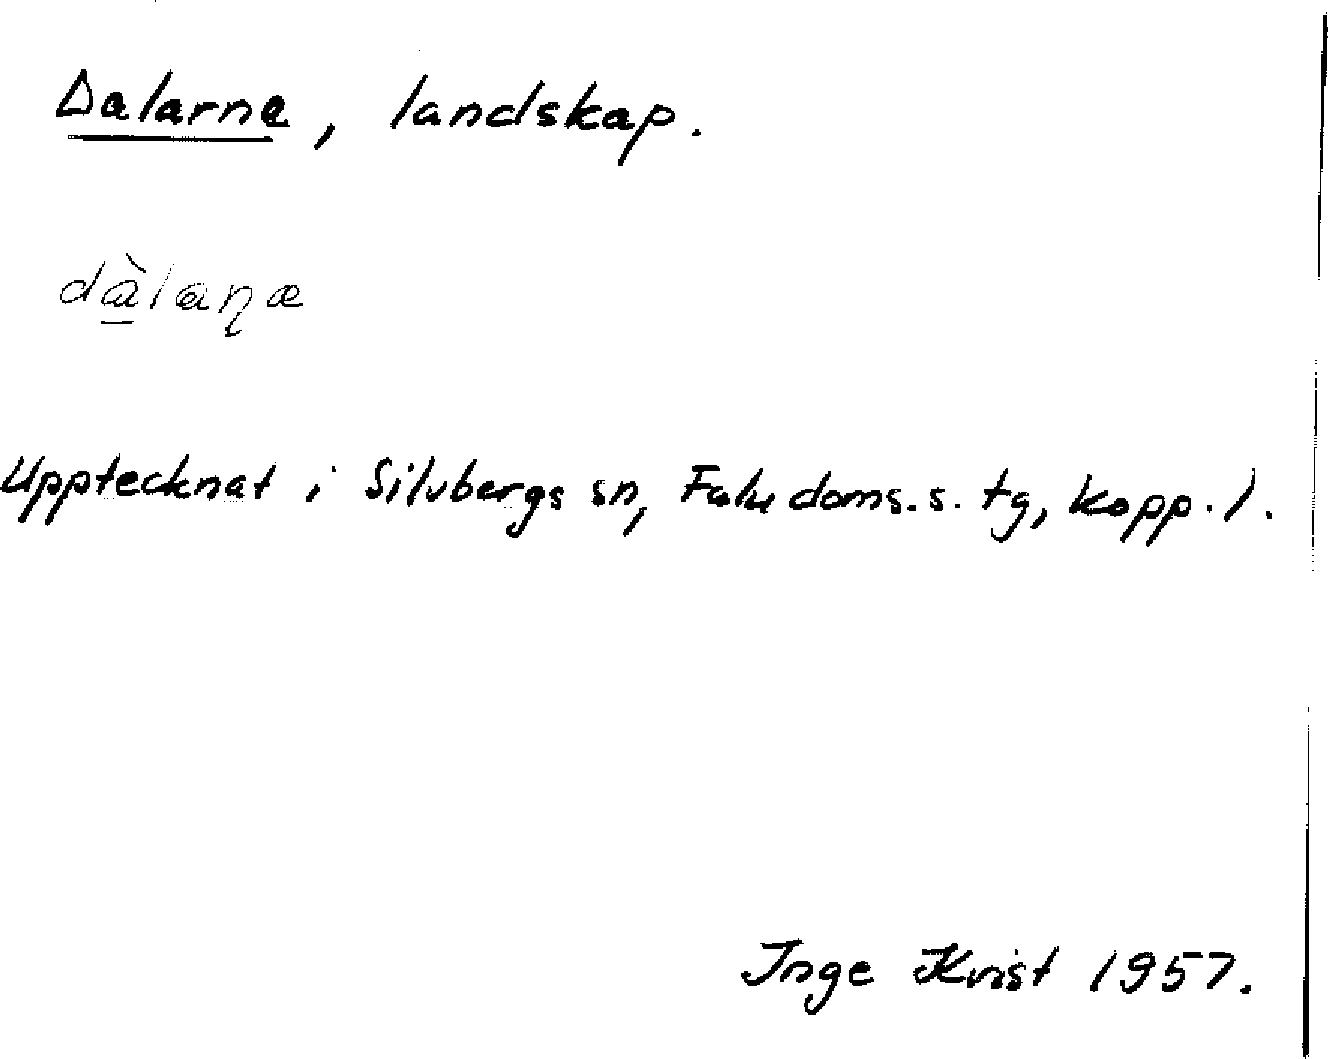 Dalarne, landskap.
dàlaɳæ
Upptecknat i Silvbergs sn, Falu doms.s. tg, Kopp. l.
Inge Kvist 1957.